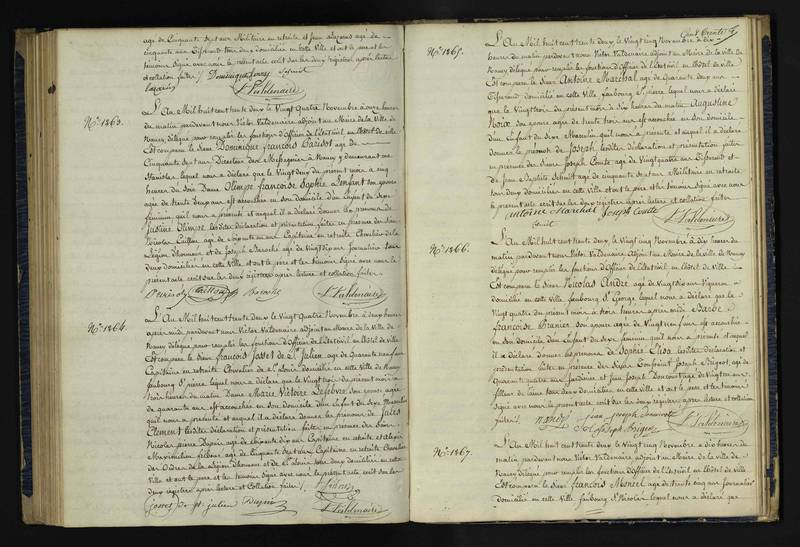 agé de Cinquante sept ans Militaire en retraite et Jean Lazarus agé de
cinquante ans Tisserand tous deux domiciliés en cette Ville et ont le père et les
témoins signé avec nous le présent acte écrit sur les deux registres après lecture
et collation faites /.
N.o 1863.
L'An Mil huit cent trente deux le Vingt Quatre Novembre à onze heures
du matin pardevant nous Victor Valdenaire adjoint au Maire de la Ville de
Nancy délégué pour remplir les fonctions d'Officier de l'Etat civil en l'hôtel de Ville
Est comparu le Sieur Dominique François Parisot agé de
Cinquante sept ans Directeur des Messageries à Nancy y demeurant rue
Stanislas lequel nous a déclaré que le Vingt deux du présent mois à cinq
heures du soir Dame Olimpe Françoise Sophie Lenfant son épouse
agée de trente deux ans est accouchée en son domicile d'un Enfant du Sexe
féminin qu'il nous a présenté et auquel il a déclaré donner les prénoms de
Justine Olimpe lesdites déclaration et présentation faites en présence des Sieurs
Nicolas Caillou agé de soixante six ans Capitaine en retraite Chevalier de la
Légion d'honneur et de Joseph Baroche agé de Vingt six ans Journalier tous
deux domiciliés en cette Ville et ont le père et les témoins signé avec nous le
présent acte écrit sur les deux registres après lecture et collation faites
Baroche Vr Valdenaire
N.o 1864.
L'An Mil huit cent trente deux le Vingt Quatre Novembre à deux heures
après midi pardevant nous Victor Valdenaire adjoint au Maire de la Ville de
Nancy délégué pour remplir les fonctions d'Officier de l'Etat civil en l'hôtel de Ville
Est comparu le Sieur François Josset de St Julien agé de Quarante neuf ans
Capitaine en retraite Chevalier de St Louis domicilié en cette Ville de Nancy
faubourg St Pierre lequel nous a déclaré que le Vingt trois du présent mois à
huit heures du matin Dame Marie Victoire Lefebvre son épouse agée
de quarante ans est accouchée en son domicile d'un Enfant du Sexe Masculin
qu'il nous a présenté et auquel il a déclaré donner les prénoms de Jules
Clément lesdites déclaration et présentation faites en présence des Sieurs
Nicolas Pierre Dupin agé de soixante dix ans Capitaine en retraite
agé de cinquante sept ans Capitaine en retraite Chevalier
des Ordres de la Légion d'honneur et de St Louis tous deux domiciliés en cette
Ville et ont le père et les témoins signé avec nous le présent acte écrit sur les
deux registres après lecture et Collation faites /.
Josset de St Julien Vr Valdenaire
Cent Trente
N.o 1865.
L'An Mil huit cent trente deux le Vingt cinq Novembre à dix
heures du matin pardevant nous Victor Valdenaire adjoint au Maire de la Ville de
Nancy délégué pour remplir les fonctions d'Officier de l'Etat civil en l'hôtel de Ville
Est comparu le Sieur Antoine Maréchal agé de Quarante deux ans
Tisserand domicilié en cette Ville faubourg St Pierre lequel nous a déclaré
que le Vingt trois du présent mois à dix heures du matin Augustine
Noize son épouse agée de trente trois ans est accouchée en son domicile
d'un Enfant du Sexe Masculin qu'il nous a présenté et auquel il a déclaré
donner le prénom de Joseph lesdites déclaration et présentation faites
en présence des Sieurs Joseph Comte agé de Vingt quatre ans Tisserand et
de Jean Baptiste Schmitt agé de cinquante sept ans Militaire en retraite
tous deux domiciliés en cette Ville et ont le père et les témoins signé avec nous
le présent acte écrit sur les deux registres après lecture et collation faites
antoine Marchal Joseph Comte Vr Valdenaire
N.o 1866.
L'An Mil huit cent trente deux le Vingt cinq Novembre à dix heures du
matin pardevant nous Victor Valdenaire Adjoint au Maire de la ville de Nancy
délégué pour remplir les fonctions d'Officier de l'Etat civil en l'hôtel de Ville
Est comparu le Sieur Nicolas André agé de Vingt six ans Vigneron
domicilié en cette Ville faubourg St George lequel nous a déclaré que le
Vingt quatre du présent mois à huit heures après midi Barbe
Françoise Granier son épouse agée de Vingt cinq ans est accouchée
en son domicile d'un Enfant du Sexe féminin qu'il nous a présenté et auquel
il a déclaré donner les prénoms de Sophie Elisa lesdites déclaration et
présentation faites en présence des Sieurs Joseph agé de
Quarante quatre ans Jardinier et Jean Joseph agé de Vingt
de laine tous deux domiciliés en cette Ville et ont le père et les témoins
signé avec nous le présent acte écrit sur les deux registres après lecture et collation
faites /. Vr Valdenaire
N.o 1867.
L'An Mil huit cent trente deux le Vingt cinq Novembre à dix heures du
matin pardevant nous Victor Valdenaire adjoint au Maire de la ville de
Nancy délégué pour remplir les fonctions d'Officier de l'Etat civil en l'hôtel de Ville
Est comparu le Sieur François Moncel agé de trente cinq ans Journalier
domicilié en cette Ville faubourg St Nicolas lequel nous a déclaré que